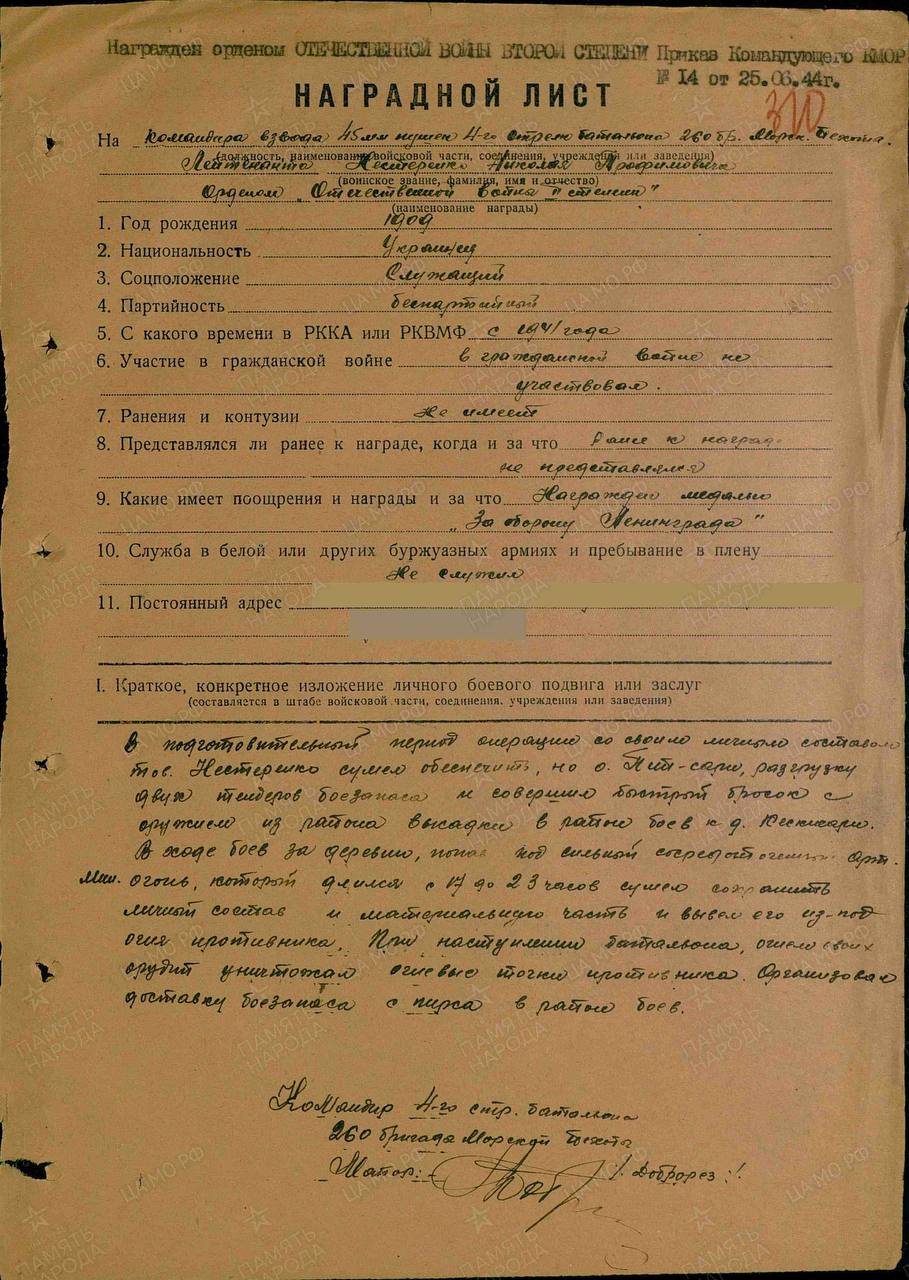 Награжден орденом ОТЕЧЕСТВЕННОЙ ВОЙНЫ ВТОРОЙ СТЕПЕНИ Приказ Командующего КМОР
№ 14 от 25.06.44г.
НАГРАДНОЙ ЛИСТ
310
На командира взвода 45 мм пушек 4-го стрелк. батальона 260 бр. Морск. Пехоты.
(должность, наименование войсковой части, соединения, учреждения или заведения)
Лейтенанта Нестеренко Николая Трофимовича
(воинское звание, фамилия, имя и отчество)
Орденом „Отечественной Война II степени"
(наименование награды)
1. Год рождения 1909
2. Национальность Украинец
3. Соцположение Служащий
4. Партийность беспартийный
5. С какого времени в РККА или РКВМФ с 1941 года
6. Участие в гражданской войне в гражданской войне не
участвовал.
7. Ранения и контузии Не имеет
8. Представлялся ли ранее к награде, когда и за что Ранее к наград
не представлялся
9. Какие имеет поощрения и награды и за что Награжден медалью
„За оборону Ленинграда"
10. Служба в белой или других буржуазных армиях и пребывание в плену
Не служил
11. Постоянный адрес
I. Краткое, конкретное изложение личного боевого подвига или заслуг
(составляется в штабе войсковой части, соединения, учреждения или заведения)
В подготовительный период операции со своим личным составом
тов. Нестеренко сумел обеспечить, на о. Пит-сари, разгрузку
двух тендеров боезапаса и совершил быстрый бросок с
оружием из района высадки в район боев к д. Кескисари.
В ходе боев за деревню, попав под сильный сосредоточенный Арт.
Мин. огонь, который длился с 17 до 23 часов сумел сохранить
личный состав и материальную часть и вывел его из-под
огня противника. При наступлении батальона, огнем своих
орудий уничтожал огневые точки противника. Организовал
доставку боезапаса с пирса в район боев.
Командир 4-го стр. батальона
260 бригады Морской Пехоты
Майор: /Доброрез/
ПАМЯТЬ НАРОДА
ЦАМО.РФ